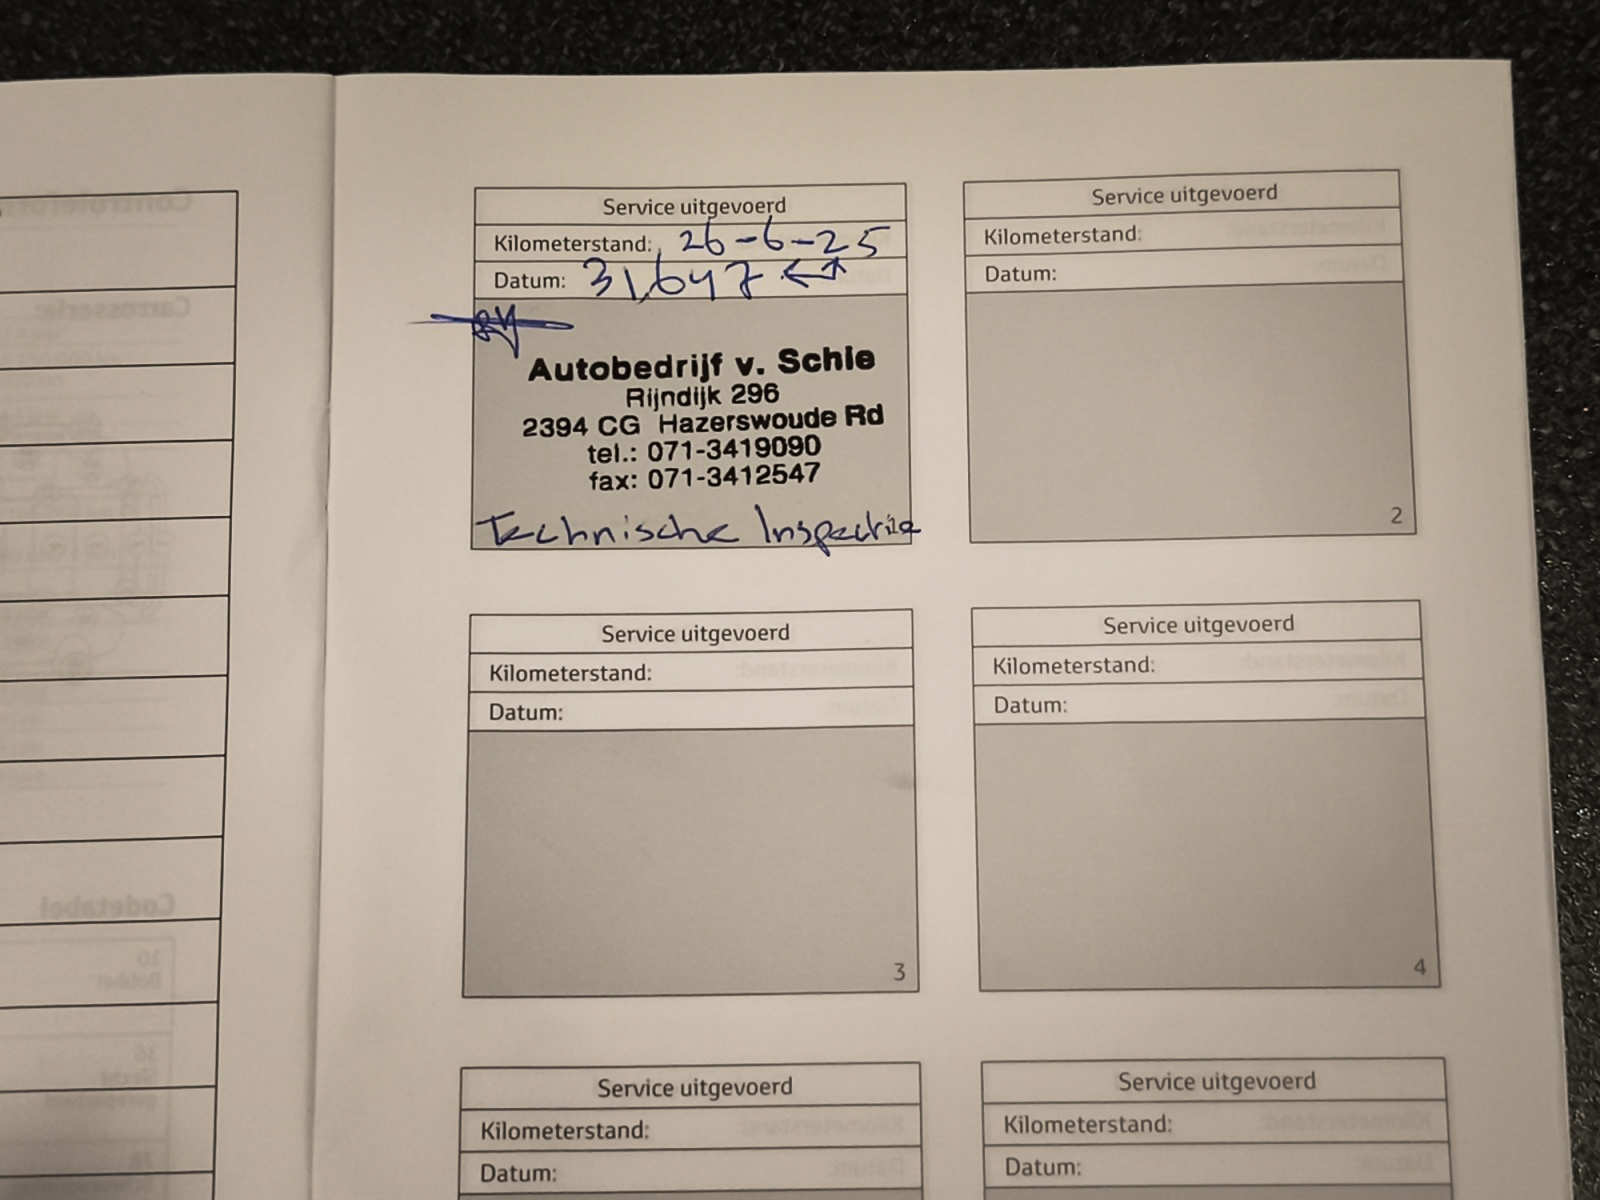 Service uitgevoerd
Kilometerstand: 26-6-25
Datum: 31,647
Autobedrijf v. Schie
Rijndijk 296
2394 CG Hazerswoude Rd
tel.: 071-3419090
fax: 071-3412547
Technische Inspectie
Service uitgevoerd
Kilometerstand:
Datum:
2
Service uitgevoerd
Kilometerstand:
Datum:
3
Service uitgevoerd
Kilometerstand:
Datum:
4
Service uitgevoerd
Kilometerstand:
Datum:
Service uitgevoerd
Kilometerstand:
Datum: